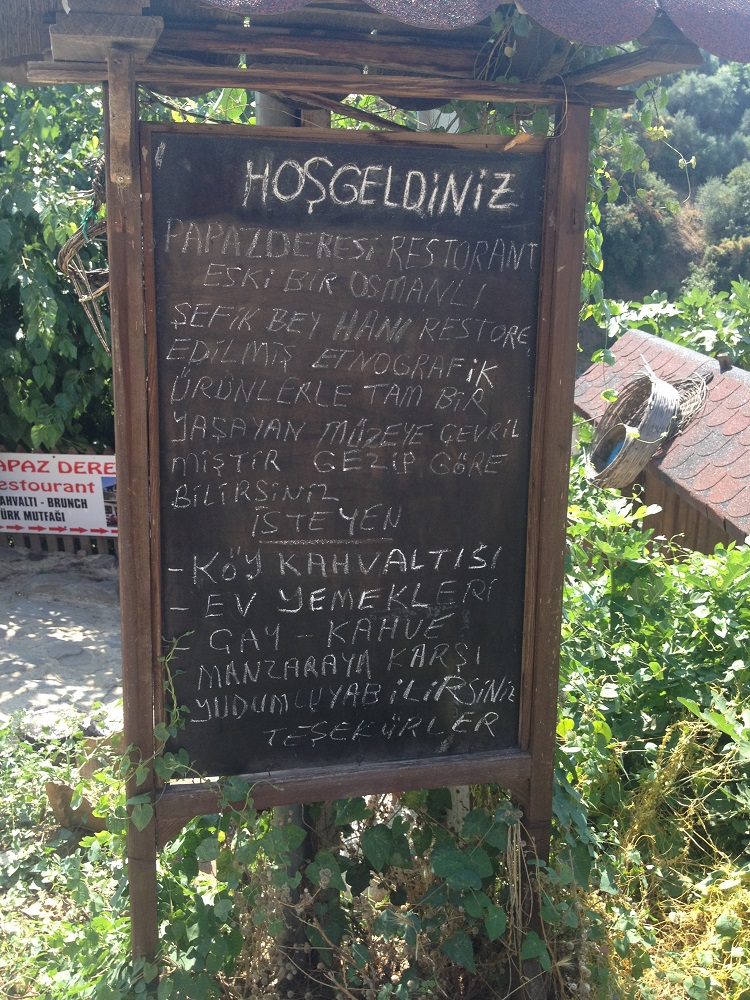 HOŞGELDİNİZ
PAPAZDERESİ RESTORANT
ESKİ BİR OSMANLI
ŞEFİK BEY HANI RESTORE
EDİLMİŞ ETNOGRAFİK
ÜRÜNLERLE TAM BİR
YAŞAYAN MÜZEYE ÇEVRİL
MİŞTİR GEZİP GÖRE
BİLİRSİNİZ
İSTEYEN
- KÖY KAHVALTISI
- EV YEMEKLERİ
- ÇAY - KAHVE
MANZARAYA KARŞI
YUDUMLUYABİLİRSİNİZ
TEŞEKÜRLER
APAZ DERE
estourant
AHVALTI - BRUNCH
ÜRK MUTFAĞI